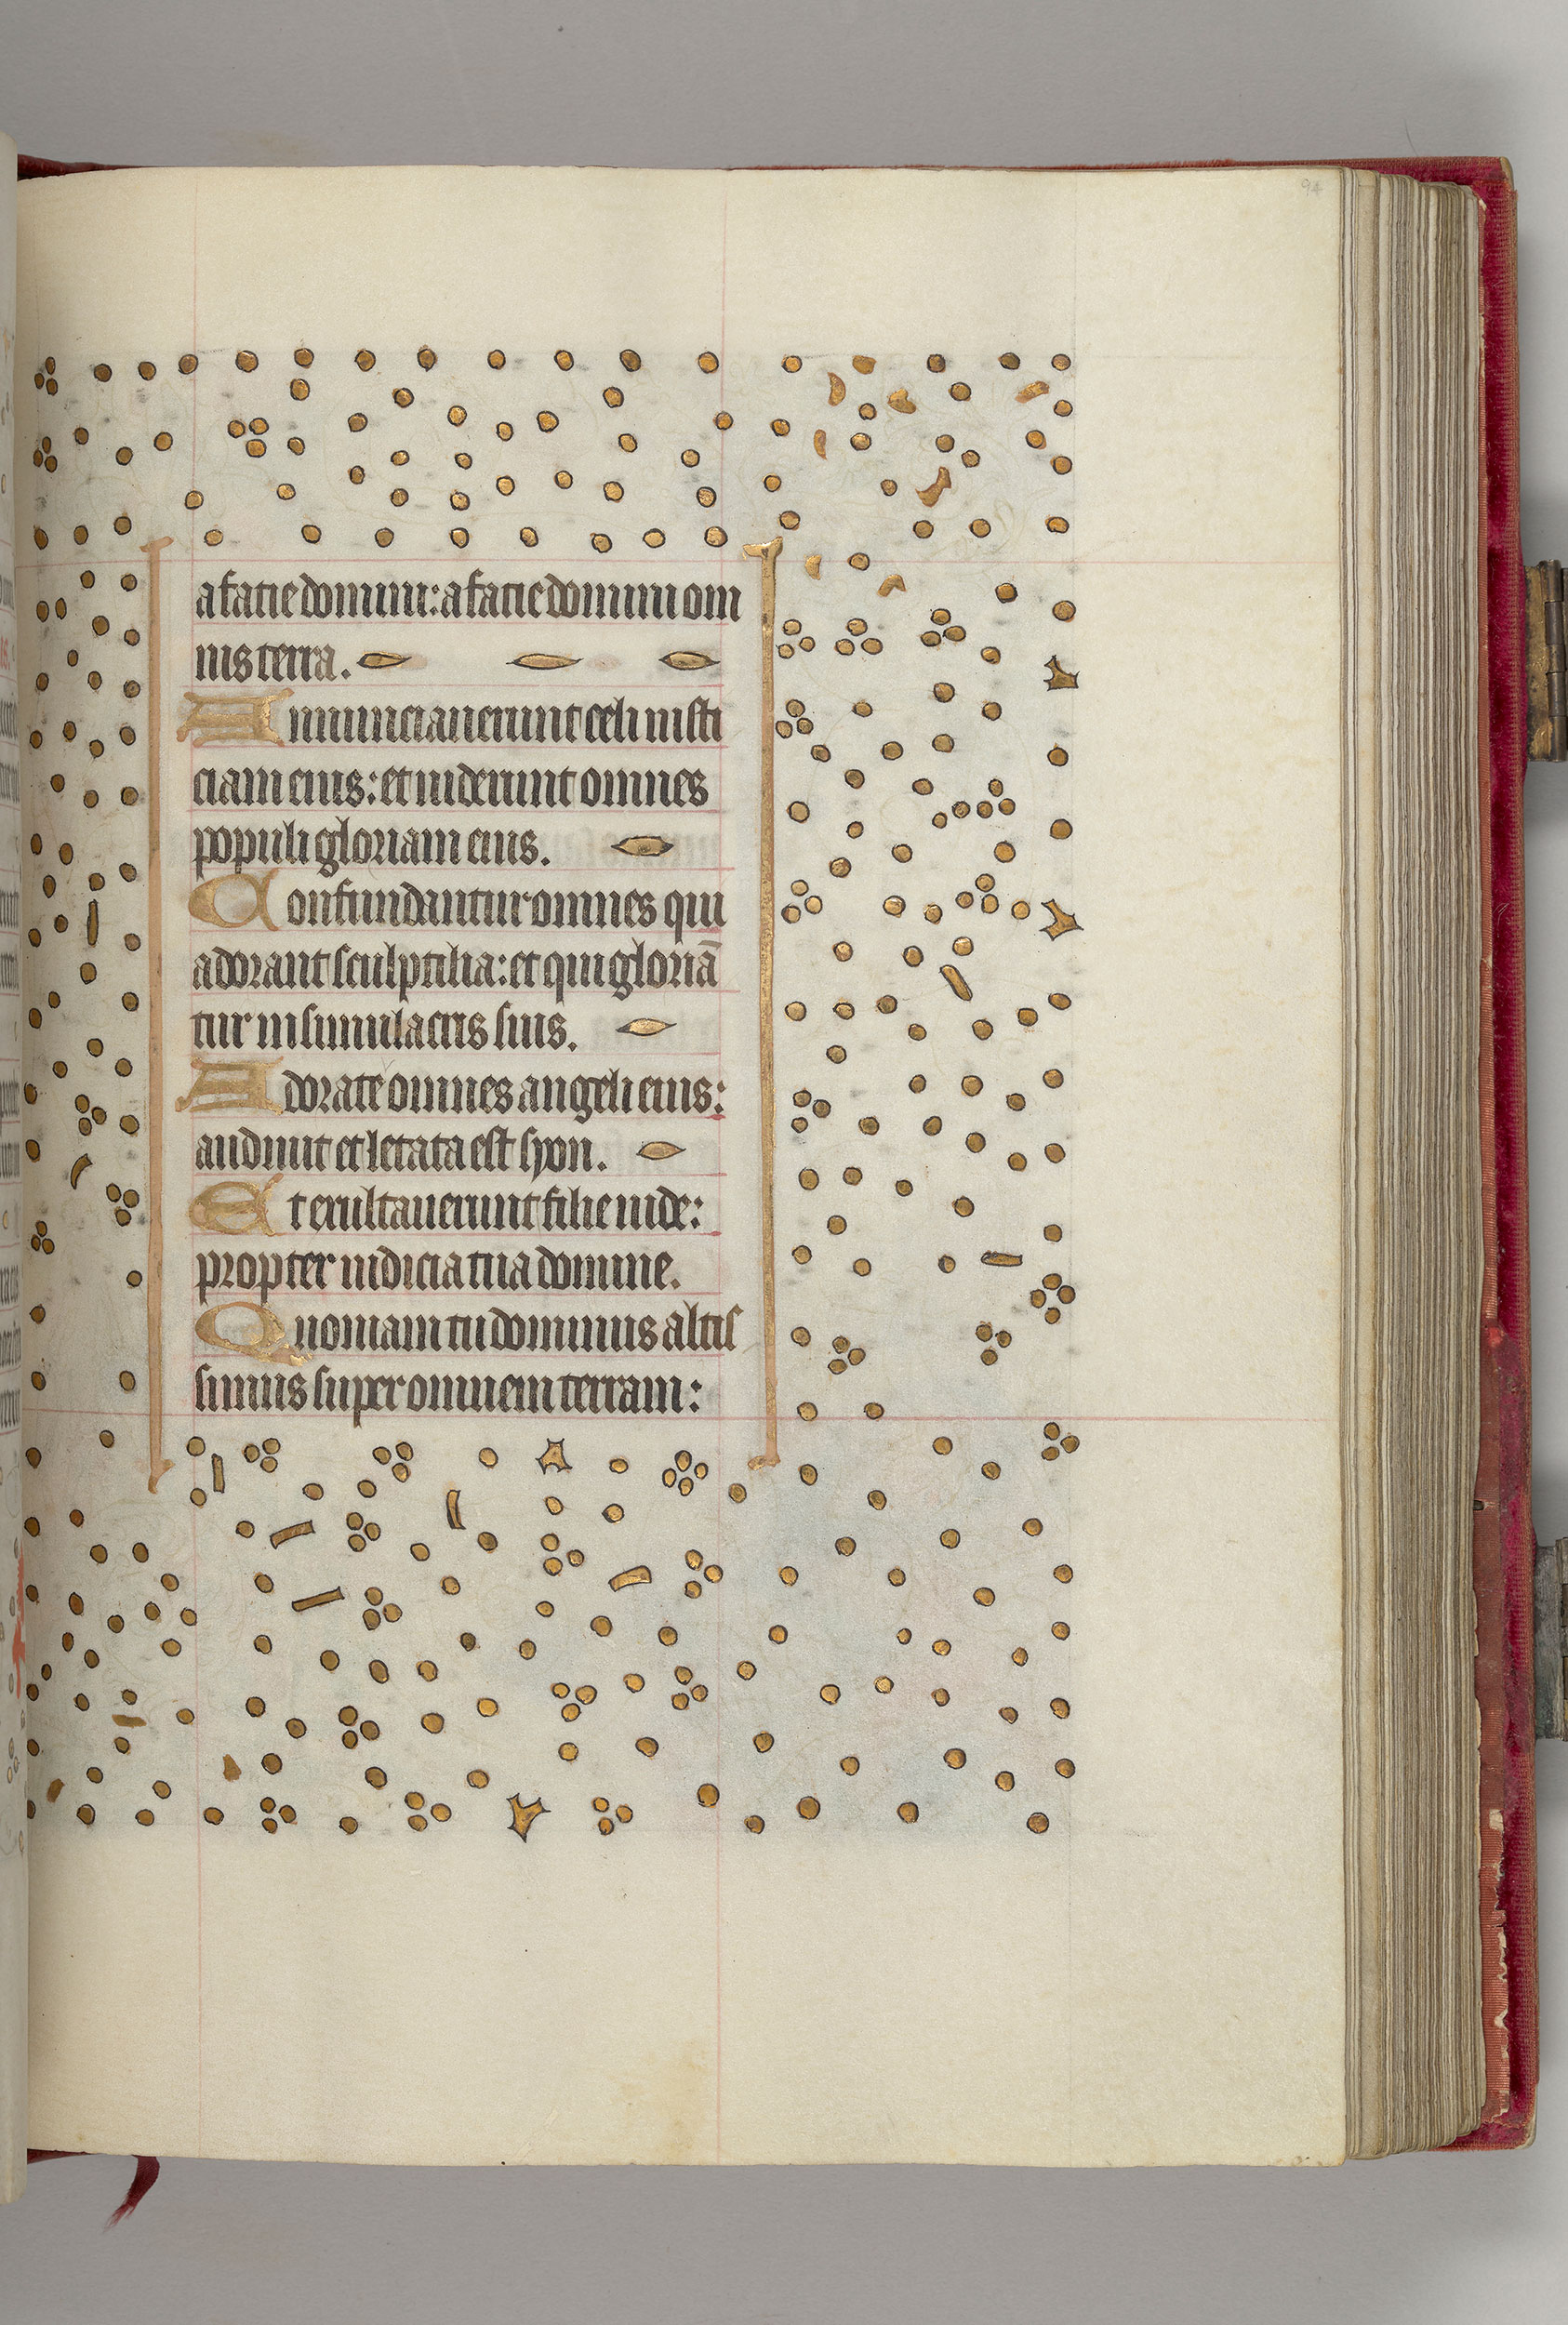 94
a facie domini: a facie domini om
nis terra.
Annunciauerunt celi iusti
ciam eius: et uiderunt omnes
populi gloriam eius.
Confundantur omnes qui
adorant sculptilia: et qui gloriã
tur in simulacris suis.
Adorate omnes angeli eius:
audiuit et letata est syon.
Et exultauerunt filie iude:
propter iudicia tua domine.
Quoniam tu dominus altis
simus super omnem terram: